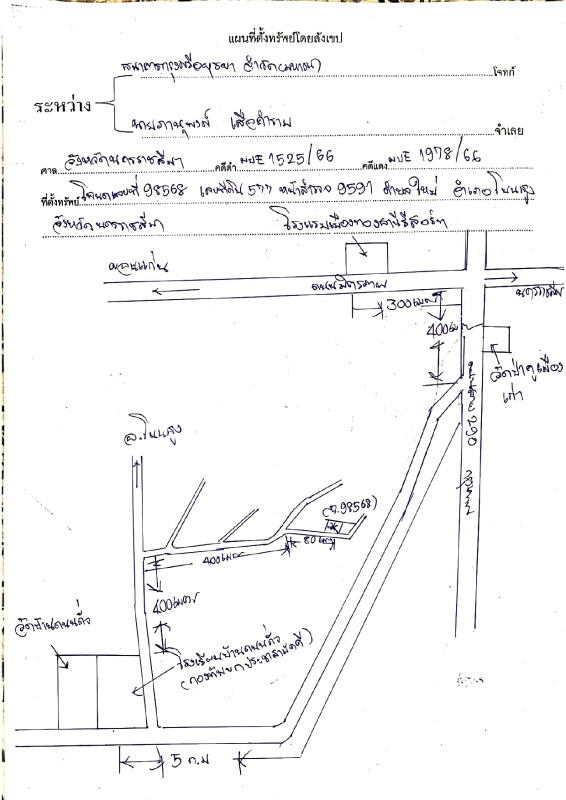 แผนที่ตั้งทรัพย์โดยสังเขป
ธนาคารกรุงศรีอยุธยา จำกัด (มหาชน)
โจทก์
ระหว่าง
นายภานุพงศ์
จำเลย
ศาล จังหวัดนครราชสีมา คดีดำ ผบE 1525/66 คดีแดง ผบE 1978/66
ที่ตั้งทรัพย์ โฉนดเลขที่ 98568 เลขที่ดิน 577 หน้าสำรวจ 9591 ตำบลใหม่ อำเภอโนนสูง
จังหวัดนครราชสีมา
โรงแรมเมืองทองธานีรีสอร์ท
ขอนแก่น
ถนนมิตรภาพ
300 เมตร
400 เมตร
วัดป่าคูเมือง
เก่า
290
อ.โนนสูง
(ฉ.98568)
80 เมตร
400 เมตร
400 เมตร
วัดบ้านถนนถั่ว
โรงเรียนบ้านถนนถั่ว
5 ก.ม